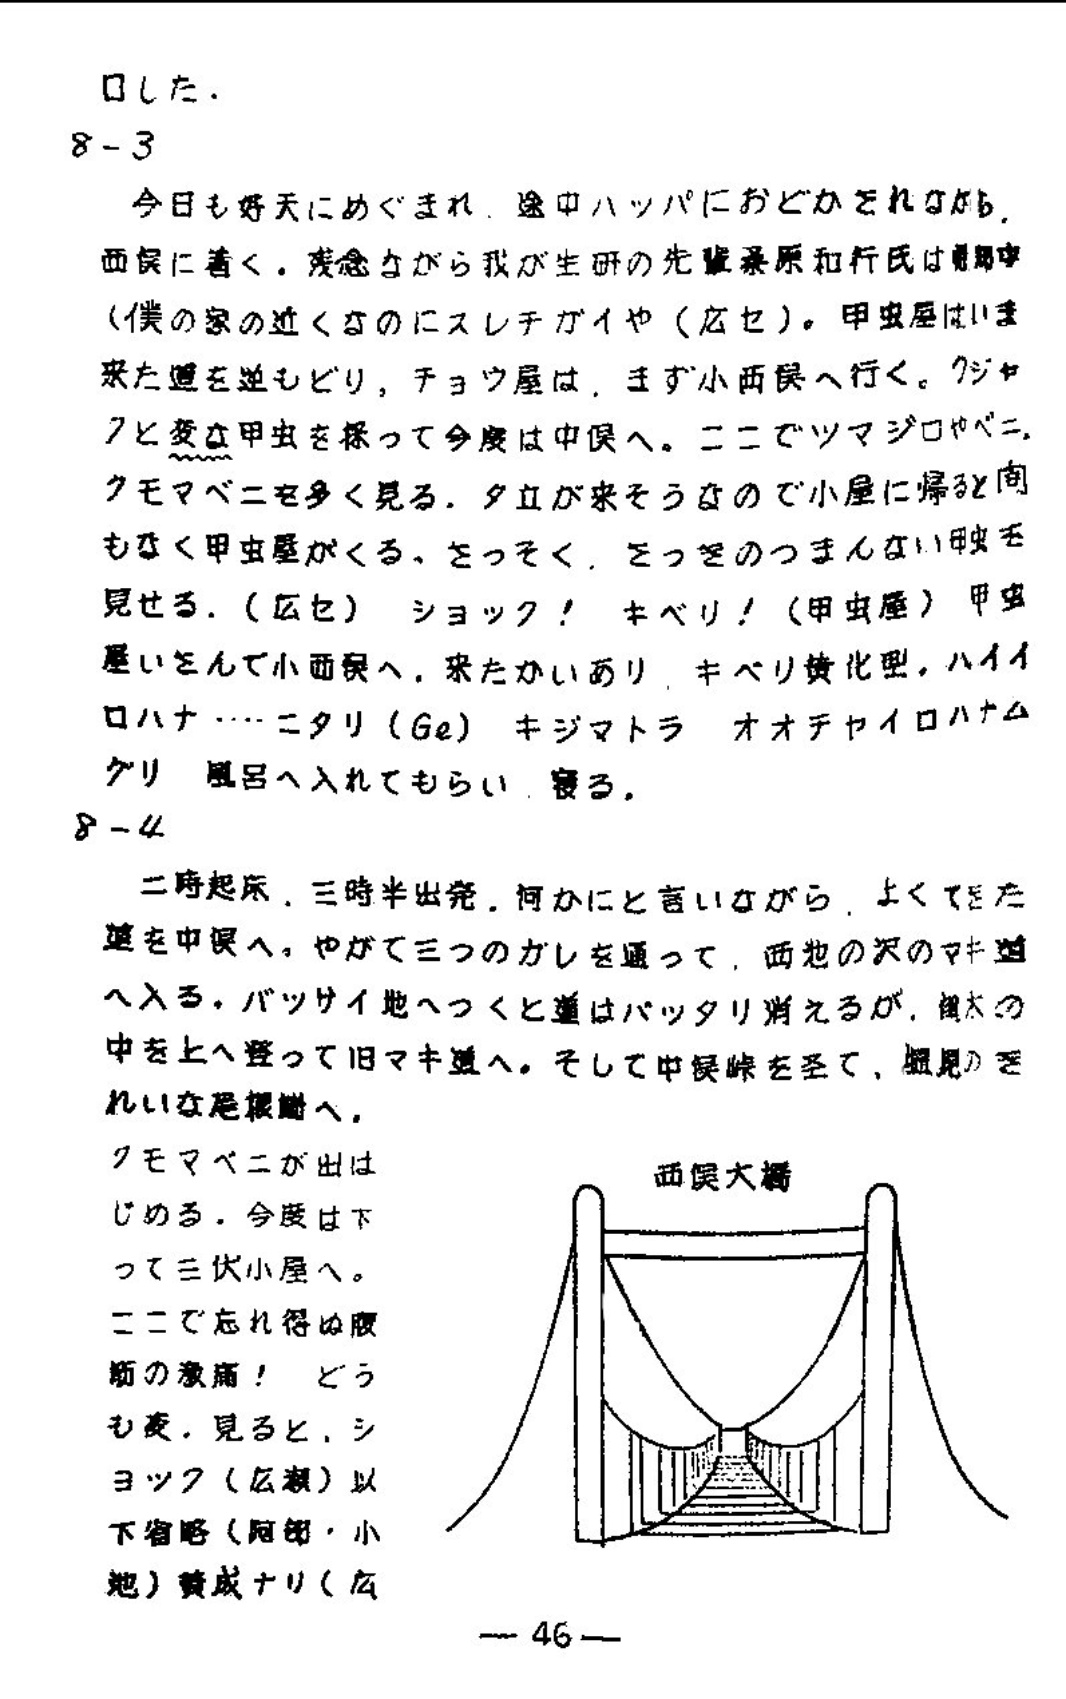 口した.
8-3
今日も好天にめぐまれ、途中ハッパにおどかされながら、
西俣に着く。残念ながら我が生研の先輩桒原和行氏は帰郷中
(僕の家の近くなのにスレチガイや(広セ)。甲虫屋はいま
来た道を逆もどり, チョウ屋は、まず小西俣へ行く。クジャ
クと変な甲虫を採って今度は中俣へ。ここでツマジロやベニ、
クモマベニを多く見る. 夕立が来そうなので小屋に帰ると間
もなく甲虫屋がくる、さっそく、さっきのつまんない甲虫を
見せる. (広セ) ショック! キベリ! (甲虫屋) 甲虫
屋いさんで小西俣へ. 来たかいあり、キベリ横化型, ハイイ
ロハナ‥‥ニタリ(Ge) キジマトラ オオチャイロハナム
グリ 風呂へ入れてもらい、寝る.
8-4
二時起床、三時半出発. 何かにと言いながら、よくてきた
道を中俣へ。やがて三つのガレを通って、西池の沢のマキ道
へ入る. バッサイ地へつくと道はパッタリ消えるが, 倒木の
中を上へ登って旧マキ道へ。そして中俣峠を圣て、塩見のき
れいな尾根へ.
クモマベニが出は
じめる. 今度は下
って三伏小屋へ。
ここで忘れ得ぬ腹
筋の激痛! どう
も変. 見ると、シ
ョック(広瀬)以
下省略(阿部・小
池)賛成ナリ(広
西俣大橋
— 46 —